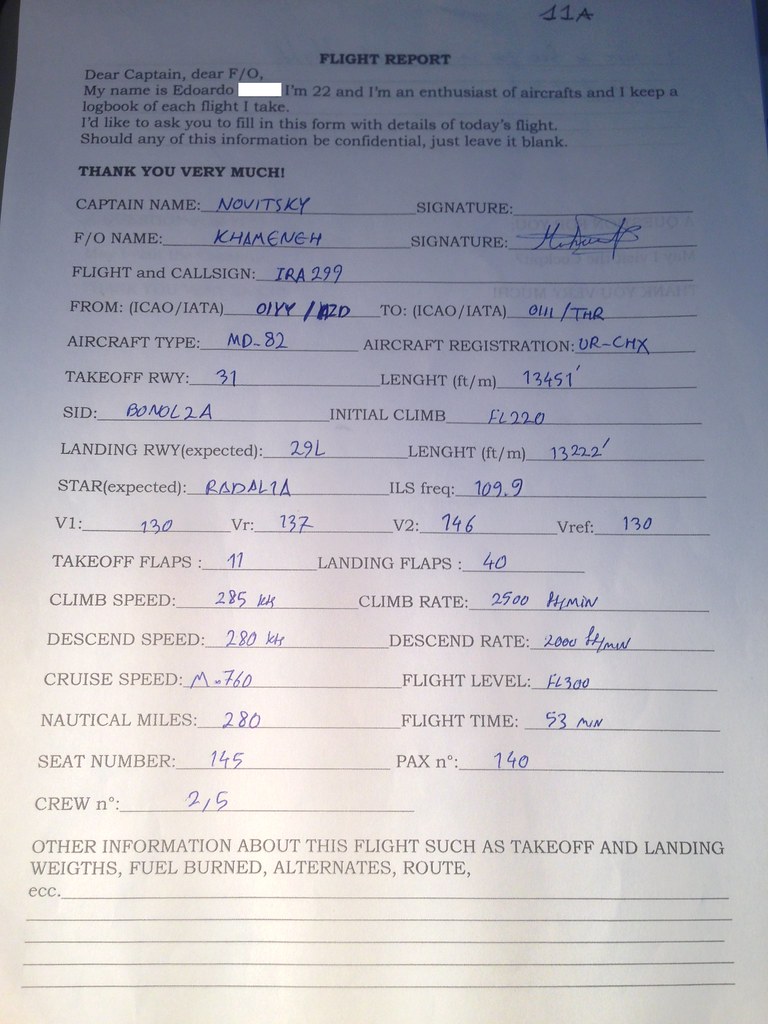 11A
FLIGHT REPORT
Dear Captain, dear F/O,
My name is Edoardo I'm 22 and I'm an enthusiast of aircrafts and I keep a
logbook of each flight I take.
I'd like to ask you to fill in this form with details of today's flight.
Should any of this information be confidential, just leave it blank.
THANK YOU VERY MUCH!
CAPTAIN NAME: NOVITSKY SIGNATURE:
F/O NAME: KHAMENEH SIGNATURE:
FLIGHT and CALLSIGN: IRA 299
FROM: (ICAO/IATA) OIYY / AZD TO: (ICAO/IATA) OIII / THR
AIRCRAFT TYPE: MD-82 AIRCRAFT REGISTRATION: UR-CHX
TAKEOFF RWY: 31 LENGHT (ft/m) 13451'
SID: BONOL2A INITIAL CLIMB FL220
LANDING RWY(expected): 29L LENGHT (ft/m) 13222'
STAR(expected): RADAL1A ILS freq: 109.9
V1: 130 Vr: 137 V2: 146 Vref: 130
TAKEOFF FLAPS : 11 LANDING FLAPS : 40
CLIMB SPEED: 285 kts CLIMB RATE: 2500 ft/min
DESCEND SPEED: 280 kts DESCEND RATE: 2000 ft/min
CRUISE SPEED: M.760 FLIGHT LEVEL: FL300
NAUTICAL MILES: 280 FLIGHT TIME: 53 MIN
SEAT NUMBER: 145 PAX n°: 140
CREW n°: 2/5
OTHER INFORMATION ABOUT THIS FLIGHT SUCH AS TAKEOFF AND LANDING
WEIGTHS, FUEL BURNED, ALTERNATES, ROUTE,
ecc.